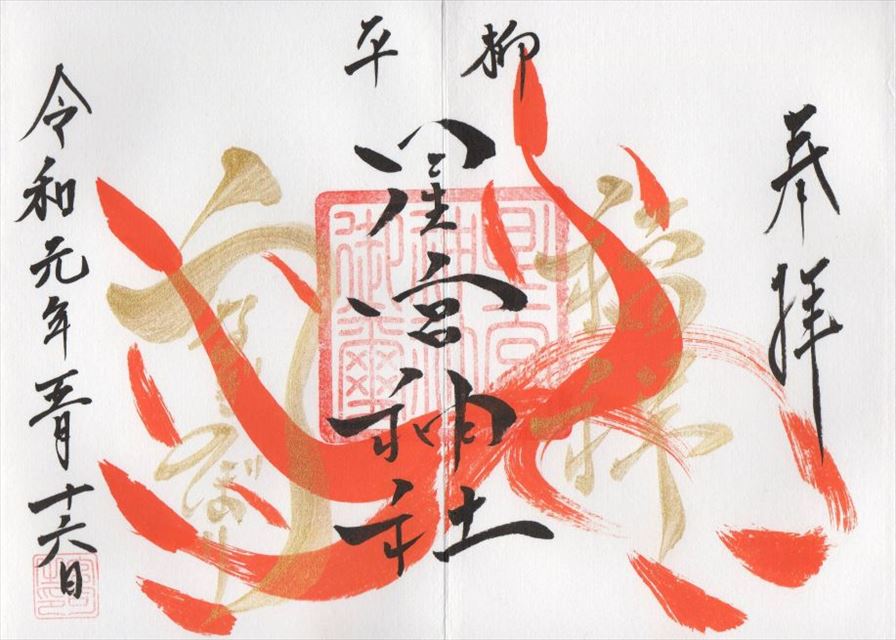 奉拝
平柳
星宮神社
星宮神社御璽
のぼり
令和元年五月十六日